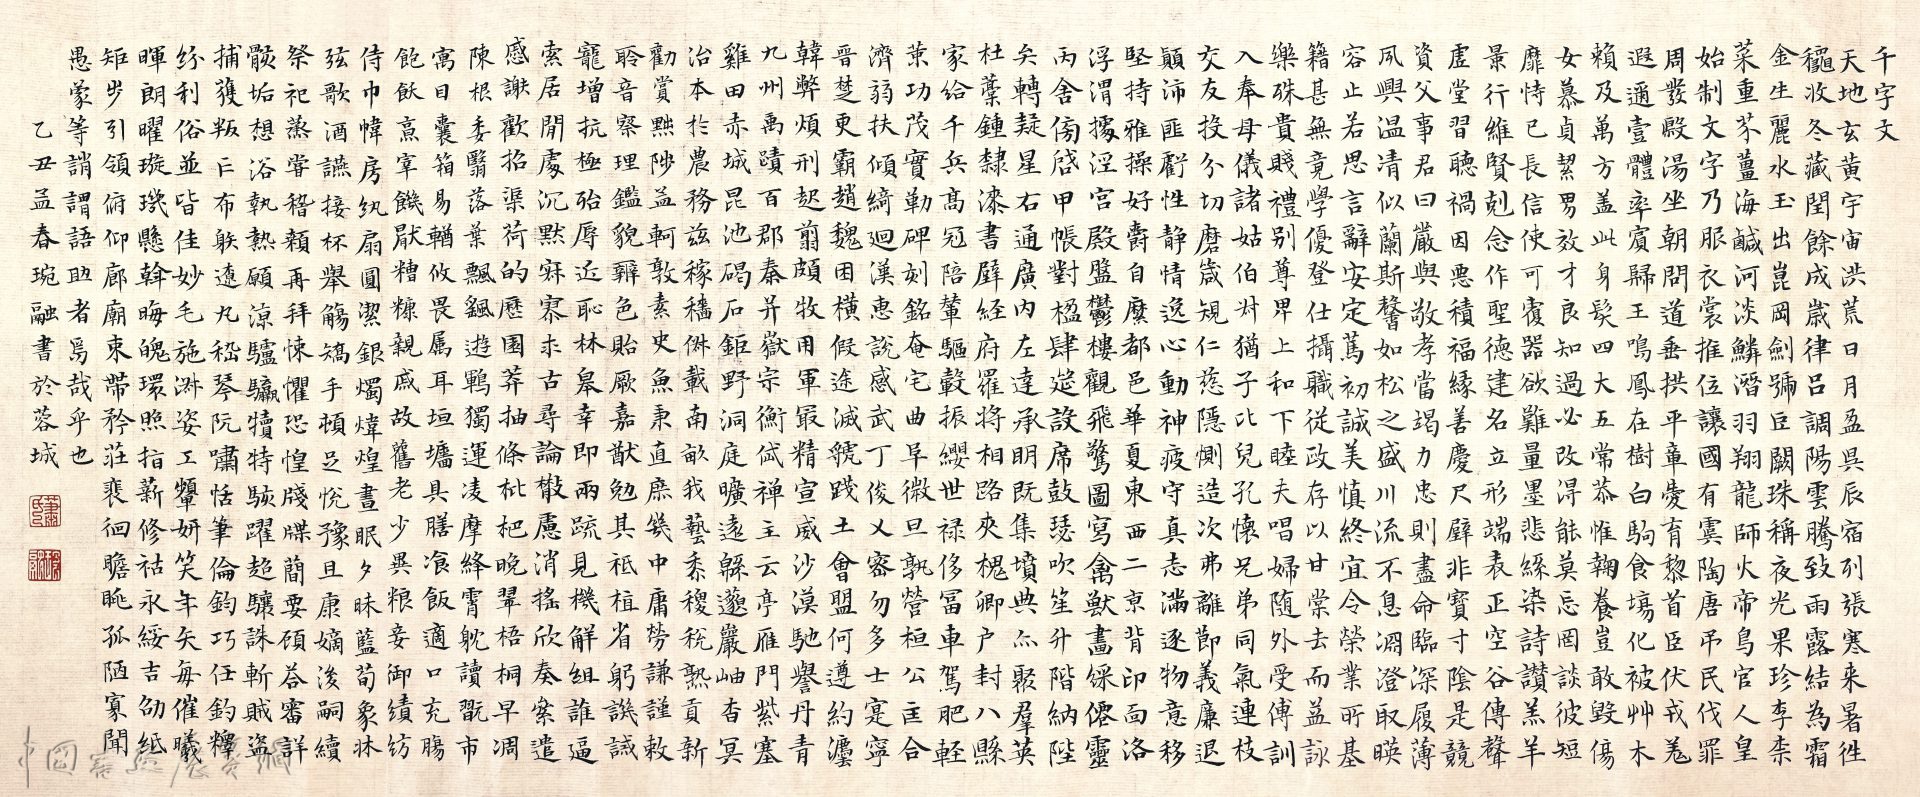 千字文
天地玄黃宇宙洪荒日月盈昃辰宿列張寒来暑往
穐收冬藏閏餘成歲律呂調陽雲騰致雨露結為霜
金生麗水玉出崑岡劍號巨闕珠稱夜光果珍李柰
菜重芥薑海鹹河淡鱗潛羽翔龍師火帝鳥官人皇
始制文字乃服衣裳推位讓國有虞陶唐弔民伐罪
周發殷湯坐朝問道垂拱平章愛育黎首臣伏戎羌
遐邇壹體率賓歸王鳴鳳在樹白駒食場化被艸木
賴及萬方盖此身髮四大五常恭惟鞠養豈敢毀傷
女慕貞絜男效才良知過必改得能莫忘罔談彼短
靡恃己長信使可覆器欲難量墨悲絲染詩讚羔羊
景行維賢剋念作聖德建名立形端表正空谷傳聲
虛堂習聽禍因惡積福緣善慶尺璧非寶寸陰是競
資父事君曰嚴與敬孝當竭力忠則盡命臨深履薄
夙興温凊似蘭斯馨如松之盛川流不息淵澄取暎
容止若思言辭安定篤初誠美慎終宜令榮業所基
籍甚無竟學優登仕攝職從政存以甘棠去而益詠
樂殊貴賤禮別尊卑上和下睦夫唱婦随外受傅訓
入奉母儀諸姑伯叔猶子比兒孔懷兄弟同氣連枝
交友投分切磨箴規仁慈隱惻造次弗離節義廉退
顛沛匪虧性静情逸心動神疲守真志滿逐物意移
堅持雅操好爵自縻都邑華夏東西二京背邙面洛
浮渭據涇宮殿盤鬱樓觀飛驚圖寫禽獸畫綵僊靈
丙舍傍啓甲帳對楹肆筵設席鼓瑟吹笙升階納陛
弁轉疑星右通廣内左達承明既集墳典亦聚羣英
杜藁鍾隸漆書壁經府羅將相路夾槐卿户封八縣
家給千兵高冠陪輦驅轂振纓世禄侈富車駕肥輕
策功茂實勒碑刻銘奄宅曲阜微旦孰營桓公匡合
濟弱扶傾綺迴漢惠說感武丁俊乂密勿多士寔寧
晉楚更霸趙魏困橫假途滅虢踐土會盟何遵約灋
韓弊煩刑起翦頗牧用軍最精宣威沙漠馳譽丹青
九州禹蹟百郡秦并嶽宗衡岱禅主云亭雁門紫塞
雞田赤城昆池碣石鉅野洞庭曠遠緜邈巖岫杳冥
治本於農務茲稼穡俶載南畝我藝黍稷稅熟貢新
勸賞黜陟孟軻敦素史魚秉直庶幾中庸勞謙謹敕
聆音察理鑑貌辨色貽厥嘉猷勉其祗植省躬譏誡
寵增抗極殆辱近恥林皋幸即兩疏見機解組誰逼
索居閒處沉默寂寥求古尋論散慮消搖欣奏累遣
慼謝歡招渠荷的歷園莽抽條枇杷晚翠梧桐早凋
陳根委翳落葉飄飖遊鵾獨運凌摩絳霄耽讀翫市
寓目囊箱易輶攸畏屬耳垣墻具膳飡飯適口充腸
飽飫烹宰饑厭糟糠親戚故舊老少異粮妾御績紡
侍巾帷房紈扇圓潔銀燭煒煌晝眠夕寐藍荀象牀
弦歌酒讌接杯舉觴矯手頓足悅豫且康嫡後嗣續
祭祀蒸嘗稽顙再拜悚懼恐惶牋牒簡要顧答審詳
骸垢想浴執熱願涼驢騾犢特駭躍超驤誅斬賊盜
捕獲叛亡布躲遼丸嵇琴阮嘯恬筆倫鈞巧任釣釋
紛利俗並皆佳妙毛施淑姿工顰妍笑年矢每催曦
暉朗曜璇璣懸斡晦魄環照指薪修祜永綏吉劭紙
矩步引領俯仰廊廟束帶矜莊裴徊瞻眺孤陋寡聞
愚蒙等誚謂語助者焉哉乎也
乙丑孟春琬融書於蓉城